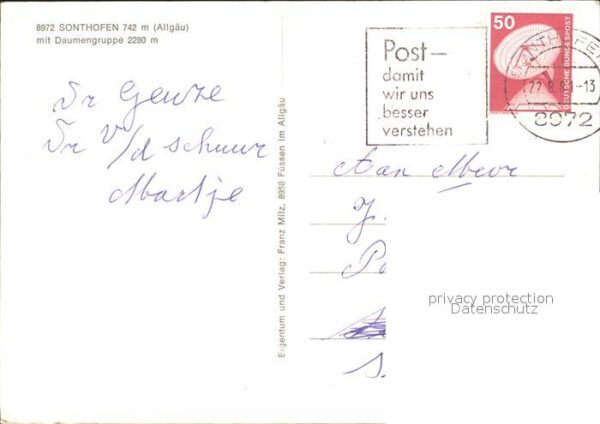 8972 SONTHOFEN 742 m (Allgäu)
mit Daumengruppe 2280 m
Eigentum und Verlag: Franz Milz, 8958 Füssen im Allgäu
Post–
damit
wir uns
besser
verstehen
50
DEUTSCHE BUNDESPOST
SONTHOFEN
-13
8972
v/d schuur
Martje
Aan Mevr
J.
privacy protection
Datenschutz